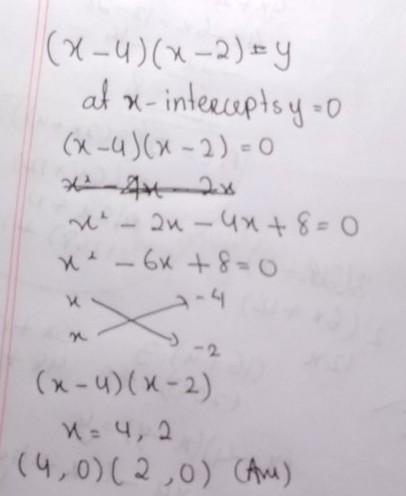 (x-4)(x-2)=y
at x-intercepts y=0
(x-4)(x-2)=0
x² - 4x - 2x
x² - 2x - 4x + 8 = 0
x² - 6x + 8 = 0
x -4
x -2
(x-4)(x-2)
x = 4, 2
(4,0)(2,0) (Ans)